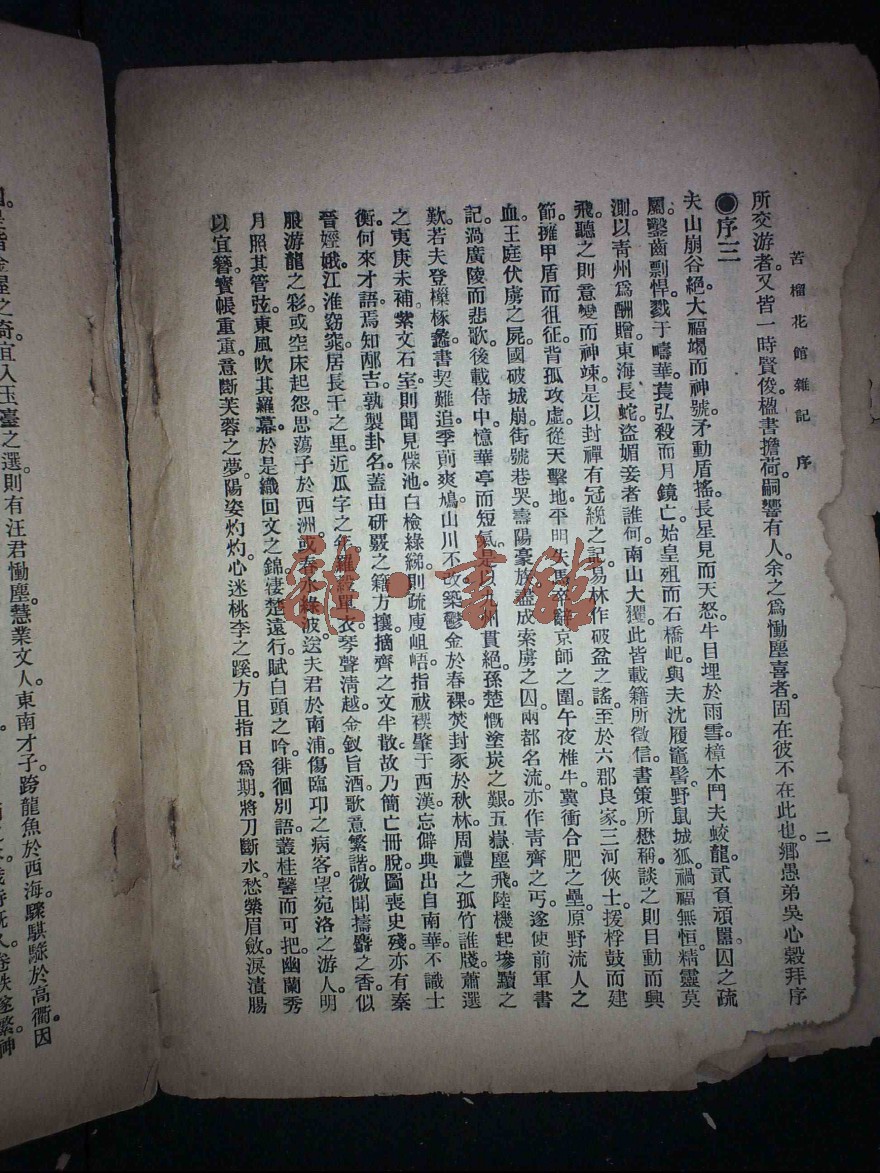 苦榴花館雜記 序
二
所交游者。又皆一時賢俊。楹書擔荷。嗣響有人。余之爲慟塵喜者。固在彼不在此也。鄉愚弟吳心榖拜序
●序三
夫山崩谷絕。大福竭而神號。矛動盾搖。長星見而天怒。牛目埋於雨雪。樟木鬥夫蛟龍。貳負頑嚚。囚之疏
屬。鑿齒剽悍。戮于疇華。萇弘殺而月鏡亡。始皇殂而石橋圯。與夫沈履竈髻。野鼠城狐。禍福無恒。精靈莫
測。以青州爲酬贈。東海長蛇。盜媚妾者誰何。南山大玃。此皆載籍所徵信。書策所懋稱。談之則目動而興
飛。聽之則意變而神竦。是以封禪有冠絻之記。易林作破盆之謠。至於六郡良家。三河俠士。援桴鼓而建
節。擁甲盾而徂征。背孤攻虛。從天擊地。平明失馬。京師之圍。午夜椎牛。冀衝合肥之壘。原野流人之
血。王庭伏虜之屍。國破城崩。街號巷哭。壽陽豪族。盡成索虜之囚。兩都名流。亦作青齊之丐。遂使前軍書
記。過廣陵而悲歌。後載侍中。憶華亭而短氣。是以州貫絕。孫楚慨塗炭之艱。五嶽塵飛。陸機起墋黷之
歎。若夫登樔椓蠡。書契難追。季萴爽鳩。山川不改。築鬱金於春祼。焚封豕於秋林。周禮之孤竹誰牋。蕭選
之夷庚未補。紫文石室。則聞見傑池。白檢綠綈。則疏庾岨峿。指祓禊肇于西漢。忘僻典出自南華。不識士
衡。何來才語。焉知邴吉。孰製卦名。蓋由研覈之籍方攘。摘齊之文半散。故乃簡亡冊脫。圖喪史殘。亦有秦
晉娙娥。江淮窈窕。居長干之里。近瓜字之年。羅縠單衣。琴聲清越。金釵旨酒。歌意繁諧。微聞擣麝之香。似
服游龍之彩。或空床起怨。思蕩子於西洲。或春水綠波。送夫君於南浦。傷臨卭之病客。望宛洛之游人。明
月照其管弦。東風吹其羅幕。於是織回文之錦。淒楚遠行。賦白頭之吟。徘徊別語。叢桂馨而可把。幽蘭秀
以宜簪。寶帳重重。意斷芙蓉之夢。陽姿灼灼。心迷桃李之蹊。方且指日爲期。將刀斷水。愁縈眉斂。淚漬腸
是皆金屋之奇。宜入玉臺之選。則有汪君慟塵。慧業文人。東南才子。跨龍魚於西海。驟騏驥於高衢。因
雜·書館